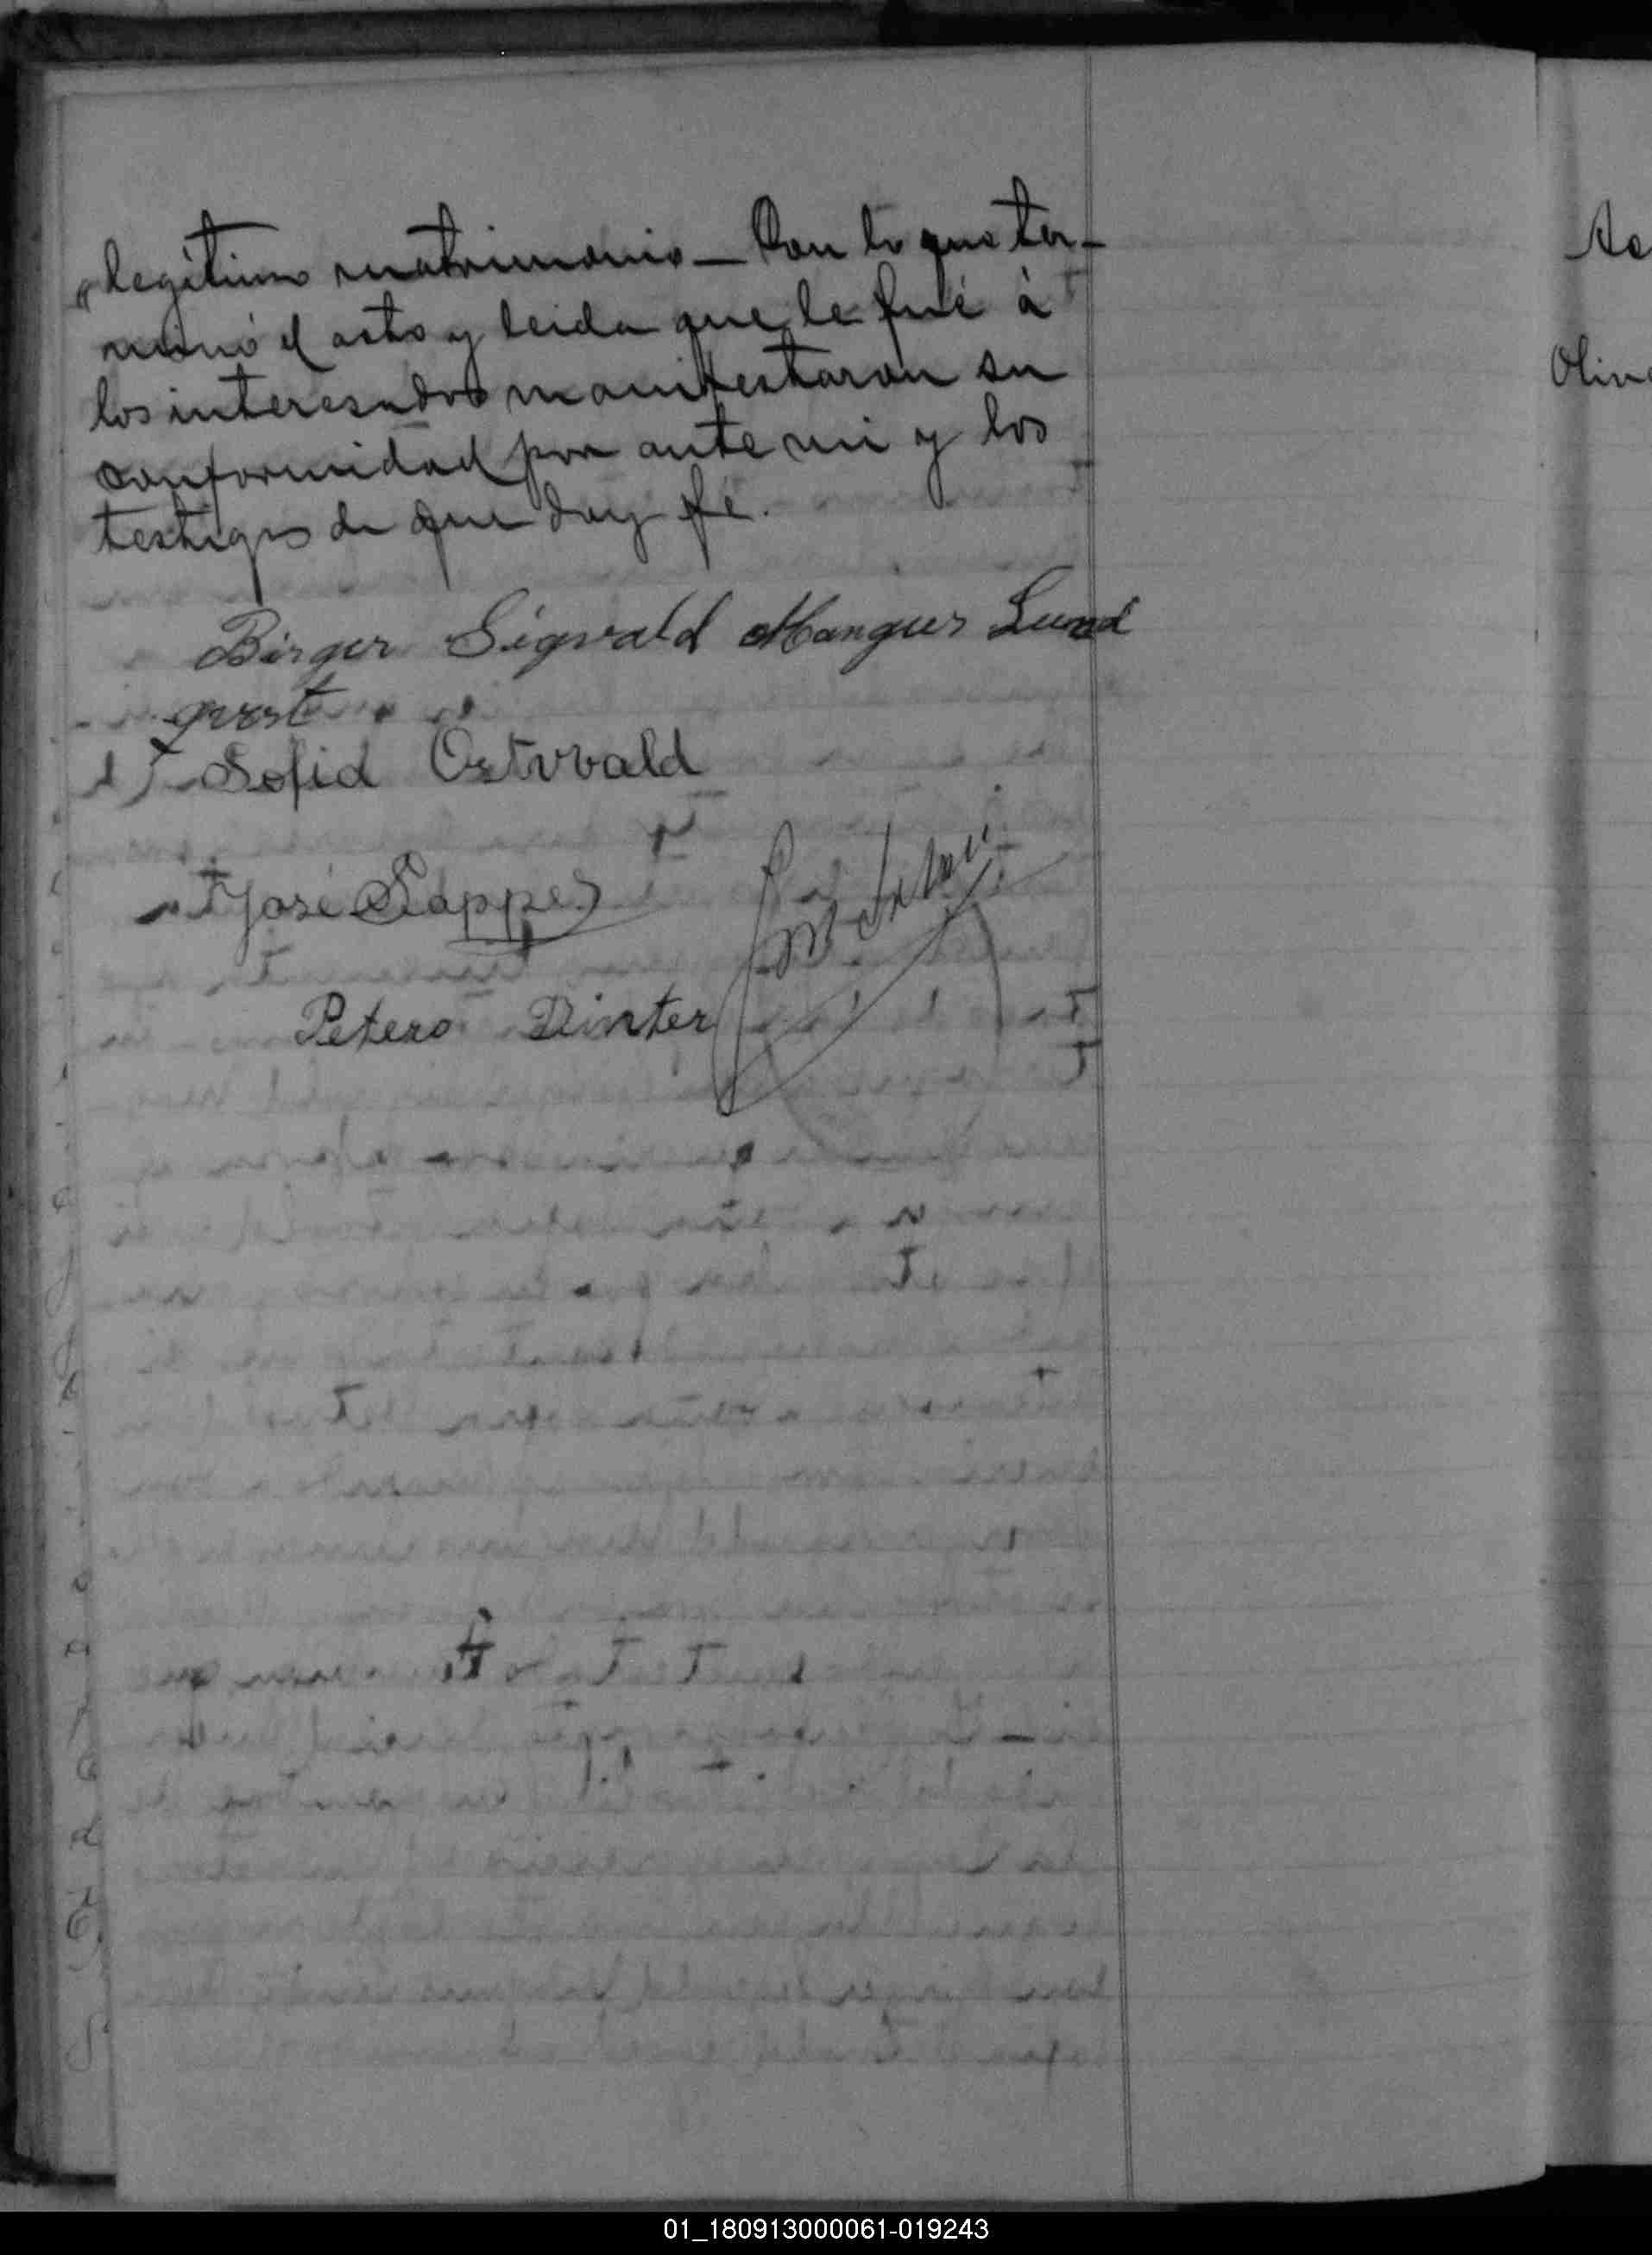 legitimo matrimonio — Con lo que ter-
minó el acto y leida que le fué à
los interesados manifestaron su
conformidad por ante mi y los
testigos de que doy fé.
Birger Sigvald Mangus Lund
qvest
Sofid Ostvvald
José Sappes
Petero Dinter
Ac
Oliv
01_180913000061-019243